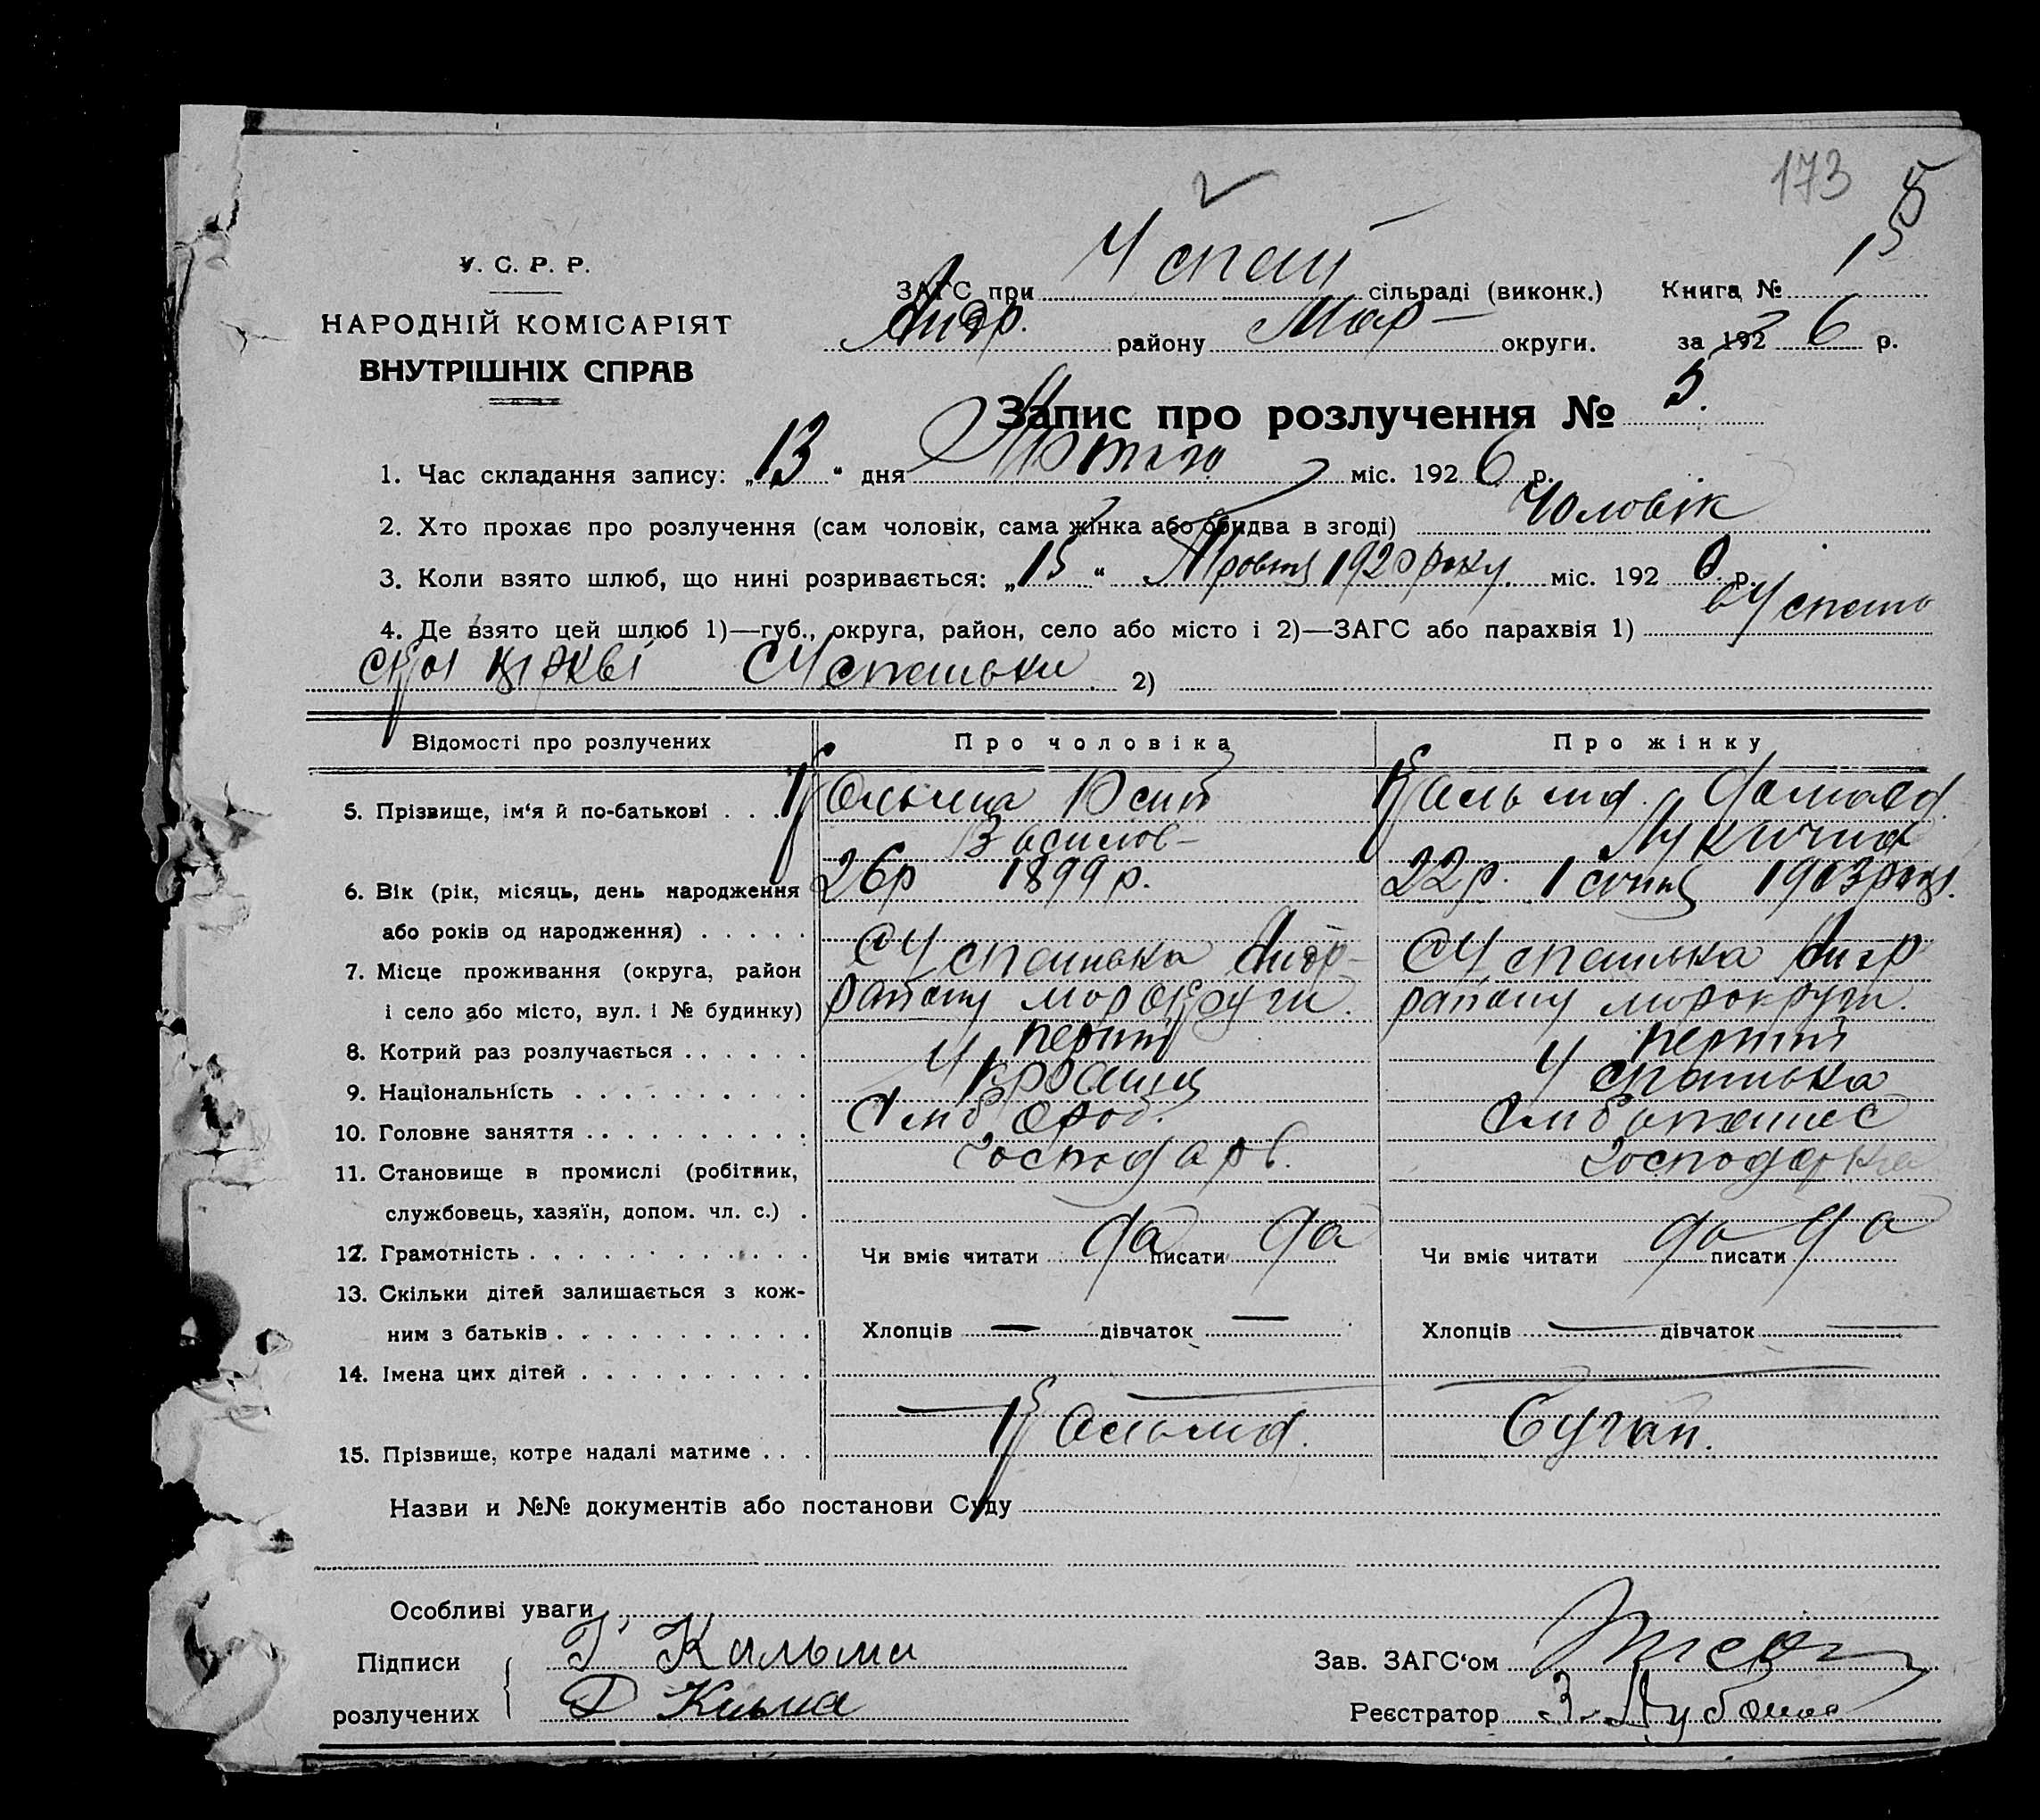 173
5
У. С. Р. Р.
НАРОДНІЙ КОМІСАРІЯТ
ВНУТРІШНІХ СПРАВ
ЗАГС при Успен сільраді (виконк.) Книга № 15
Андр. району Мар округи. за 1926 р.
Запис про розлучення № 5.
1. Час складання запису: „13“ дня Лютого міс. 1926 р.
2. Хто прохає про розлучення (сам чоловік, сама жінка або обидва в згоді) Чоловік
3. Коли взято шлюб, що нині розривається: „15“ 1920 року міс. 1920 р.
4. Де взято цей шлюб 1)—губ., округа, район, село або місто і 2)—ЗАГС або парахвія 1) в Успень
скої церкві С Успеньки 2)
Відомості про розлучених Про чоловіка Про жінку
5. Прізвище, ім‘я й по-батькові Кальма Кальма
Василов- Лукична
6. Вік (рік, місяць, день народження 26р 1899 р. 22 р. 1 січня 1903 року.
або років од народження)
7. Місце проживання (округа, район С Успенька Андр- С Успенька Андр
і село або місто, вул. і № будинку) району мар округи. району марокруги.
8. Котрий раз розлучається перший перший
9. Національність Українц Українка
10. Головне заняття
11. Становище в промислі (робітник, господарь. господарка
службовець, хазяїн, допом. чл. с.)
12. Грамотність Чи вміє читати да писати да Чи вміє читати да писати да
13. Скільки дітей залишається з кож-
ним з батьків Хлопців — дівчаток — Хлопців — дівчаток —
14. Імена цих дітей
15. Прізвище, котре надалі матиме Кальма. Бугай.
Назви и №№ документів або постанови Суду
Особливі уваги
Підписи Кальма Зав. ЗАГС‘ом
розлучених Д Реєстратор З.